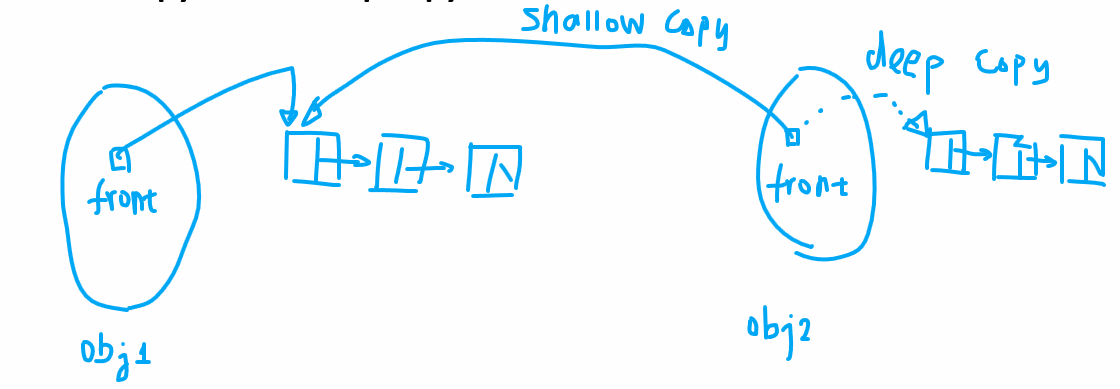 shallow copy
deep copy
front
front
obj1
obj2